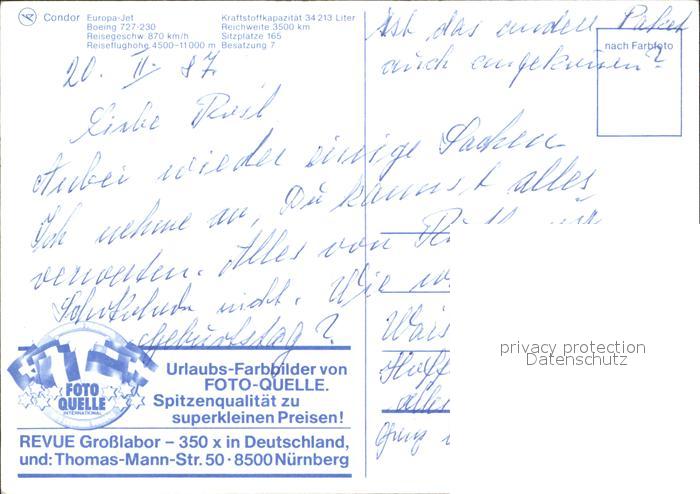 Condor Europa-Jet
Boeing 727-230
Reisegeschw. 870 km/h
Reiseflughöhe 4500–11000 m
Kraftstoffkapazität 34 213 Liter
Reichweite 3500 km
Sitzplätze 165
Besatzung 7
20. II. 87
Liebe
Anbei wieder einige Sachen
Ich nehme an, Du kannst alles
verwerten. Alles von
nicht. Wie
Geburtstag?
Ist das andere Paket
auch angekommen?
nach Farbfoto
privacy protection
Datenschutz
FOTO
QUELLE
INTERNATIONAL
Urlaubs-Farbbilder von
FOTO-QUELLE.
Spitzenqualität zu
superkleinen Preisen!
REVUE Großlabor – 350 x in Deutschland,
und: Thomas-Mann-Str. 50 · 8500 Nürnberg